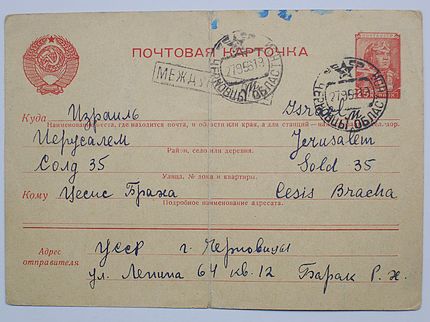 ПОЧТОВАЯ КАРТОЧКА
МЕЖДУ
27956 18
ЧЕРНОВЦЫ ОБЛАСТН
27956 18
ЧЕРНОВЦЫ ОБЛАСТН
Куда Израиль Israel
Наименование места, где находится почта, а области или края, а для станций
Иерусалем Jerusalem
Район, село или деревня.
Солд 35 Sold 35
Улица, № дома и квартиры.
Кому Цесис Браха Cesis Bracha
Подробное наименование адресата.
Адрес отправителя УССР г. Черновицы
ул. Ленина 64 кв. 12 Барак Р. Х.